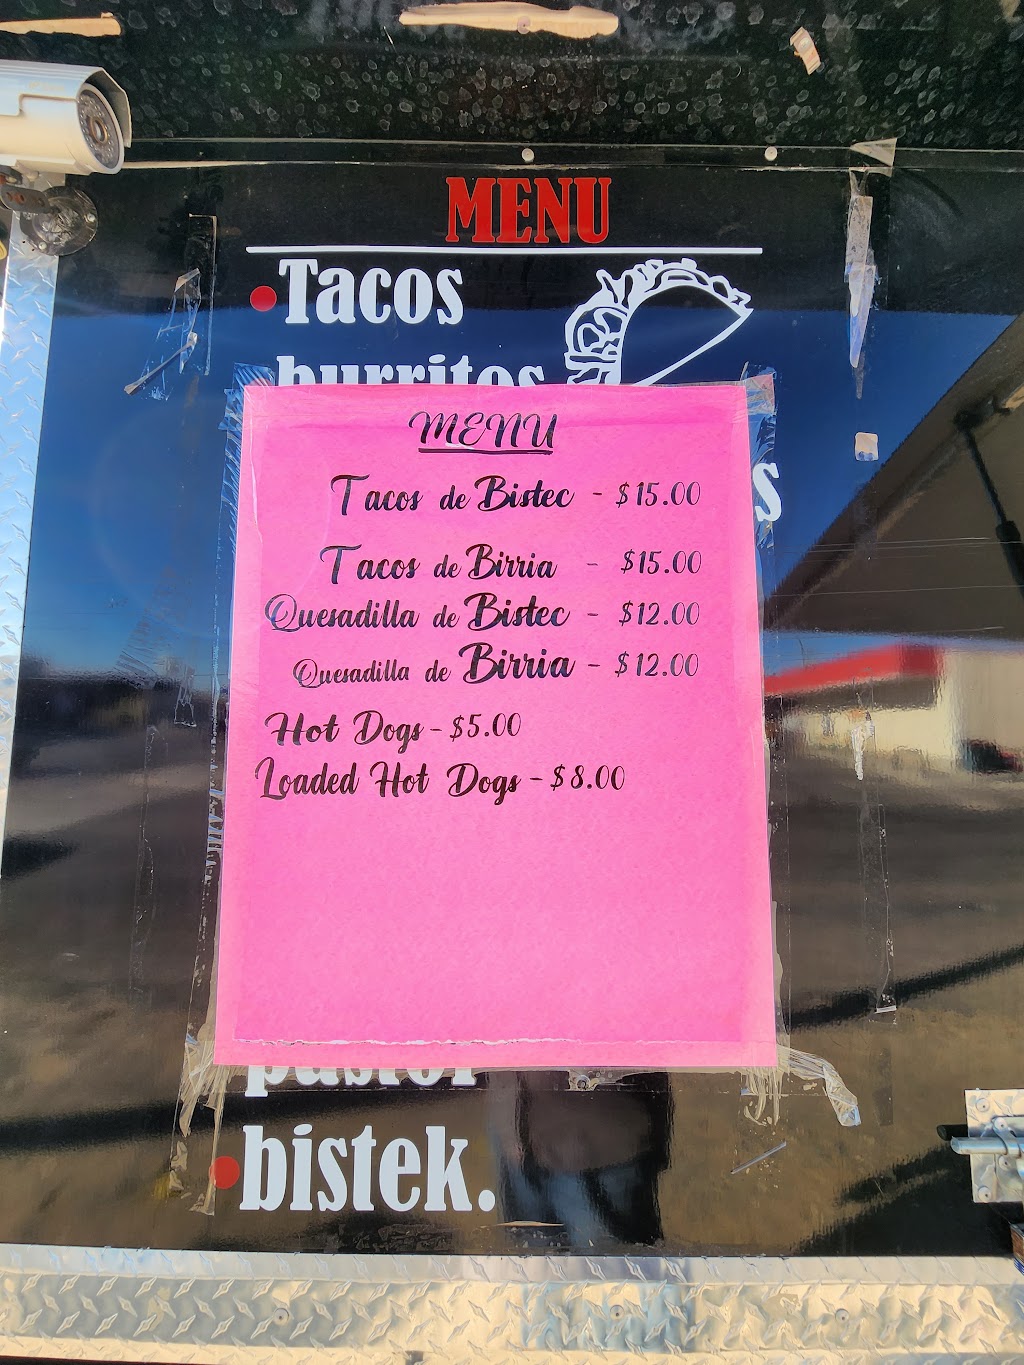 MENU
Tacos
burritos
s
MENU
Tacos de Bistec - $15.00
Tacos de Birria - $15.00
Quesadilla de Bistec - $12.00
Quesadilla de Birria - $12.00
Hot Dogs - $5.00
Loaded Hot Dogs - $8.00
pastor
bistek.